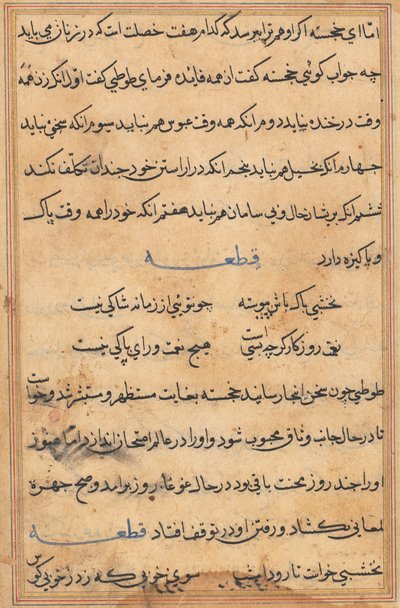 اما ای خجسته اکر او هم ترا بپرسد که کدام هفت خصلت است که در زنان می باید
چه جواب کوئی خجسته کفت از همه فایده فرمای طوطی کفت اول انکه زن همه
وقت در خنده نیاید دوم انکه همه وقت عبوس هم نباید سیوم انکه سخی نباید
چهارم انکه بخیل هم نباید پنجم انکه در اراستن خود چندان تکلف نکند
ششم انکه پریشان حال و بی سامان هم نباید هفتم انکه خود را همه وقت پاک
و پاکیزه دارد قطعه
نخشبی پاک باش پیوسته چون توئی از زمانه شاکی نیست
نعمت روزکار کرچه بسی است هیچ نعمت ورای پاکی نیست
طوطی چون سخن اینجا رسانید خجسته بغایت مستظهر و مستبشر شد و خواست
تا در حال جانب وثاق محبوب شود و او را در عالم امتحان اندازد اما هنوز
او را چند روز محنت باقی بود در حال غوغای روز برامد و صبح چهره
لمعانی بکشاد و رفتن او در توقف افتاد قطعه
نخشبی خواست تا رود امشب سوی خوبی که زد ز خوبی کوس